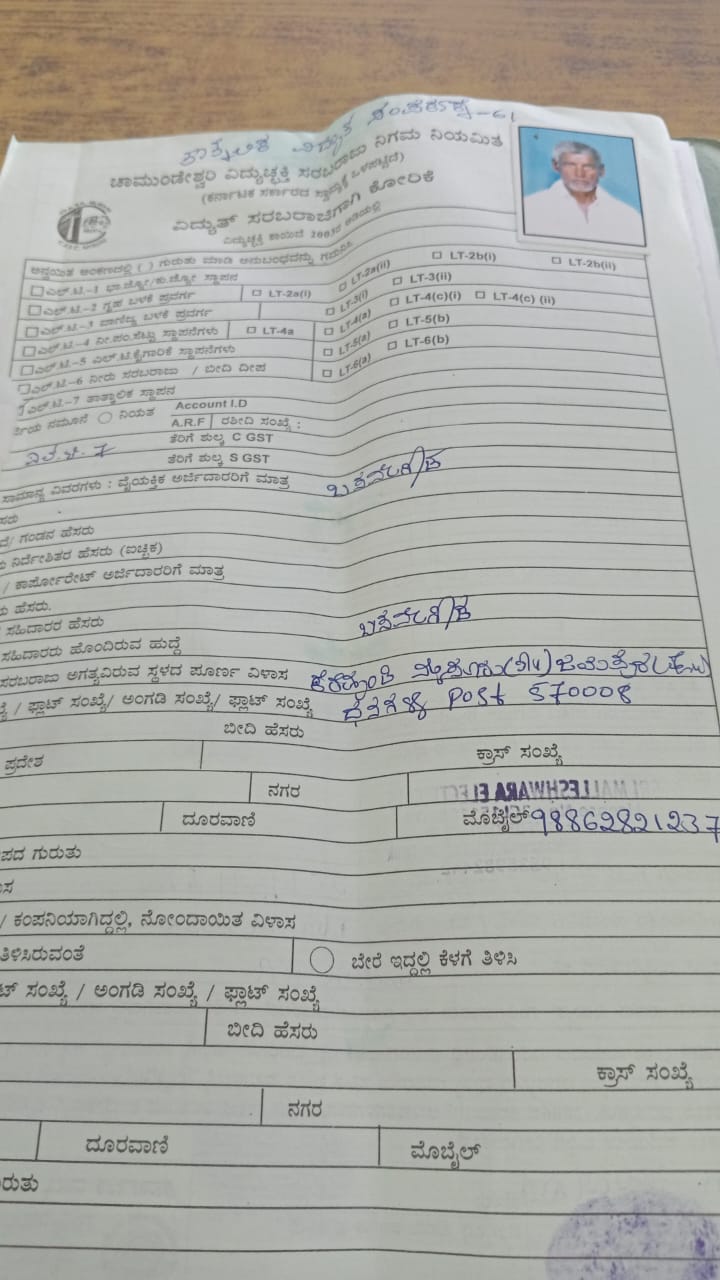 ತಾತ್ಕಾಲಿಕ ವಿದ್ಯುತ್
ಚಾಮುಂಡೇಶ್ವರಿ ವಿದ್ಯುಚ್ಛಕ್ತಿ ಸರಬರಾಜು ನಿಗಮ ನಿಯಮಿತ
(ಕರ್ನಾಟಕ ಸರ್ಕಾರದ ಸ್ವಾಮ್ಯಕ್ಕೆ ಒಳಪಟ್ಟಿದೆ)
ವಿದ್ಯುತ್ ಸರಬರಾಜಿಗಾಗಿ ಕೋರಿಕೆ
ವಿದ್ಯುಚ್ಛಕ್ತಿ ಕಾಯಿದೆ 2003ರ ಅಡಿಯಲ್ಲಿ
ಅನ್ವಯಿತ ಅಂಕಣದಲ್ಲಿ ( ) ಗುರುತು ಮಾಡಿ ಅನುಬಂಧವನ್ನು
ಎಲ್.ಟಿ.-1 ಭಾ.ಜ್ಯೋ/ಕು.ಜ್ಯೋ ಸ್ಥಾಪನ LT-2a(ii) LT-2b(i) LT-2b(ii)
ಎಲ್.ಟಿ.-2 ಗೃಹ ಬಳಕೆ ಪ್ರವರ್ಗ LT-2a(i) LT-3(i) LT-3(ii)
ಎಲ್.ಟಿ.-3 ವಾಣಿಜ್ಯ ಬಳಕೆ ಪ್ರವರ್ಗ LT-4(a) LT-4(c)(i) LT-4(c) (ii)
ಎಲ್.ಟಿ.-4 ನೀ.ಪಂ.ಸೆಟ್ಟು ಸ್ಥಾಪನೆಗಳು LT-4a LT-5(a) LT-5(b)
ಎಲ್.ಟಿ.-5 ಎಲ್.ಟಿ.ಕೈಗಾರಿಕೆ ಸ್ಥಾಪನೆಗಳು LT-6(a) LT-6(b)
ಎಲ್.ಟಿ.-6 ನೀರು ಸರಬರಾಜು / ಬೀದಿ ದೀಪ
ಎಲ್.ಟಿ.-7 ತಾತ್ಕಾಲಿಕ ಸ್ಥಾಪನ
ನಮೂನೆ ನಿಯತ Account I.D
A.R.F ರಶೀದಿ ಸಂಖ್ಯೆ :
ತೆರಿಗೆ ಶುಲ್ಕ C GST
ಎಲ್.ಟಿ. 7 ತೆರಿಗೆ ಶುಲ್ಕ S GST
ಸಾಮಾನ್ಯ ವಿವರಗಳು : ವೈಯಕ್ತಿಕ ಅರ್ಜಿದಾರರಿಗೆ ಮಾತ್ರ
/ ಗಂಡನ ಹೆಸರು
ನಿರ್ದೇಶಿತರ ಹೆಸರು (ಐಚ್ಛಿಕ)
/ ಕಾರ್ಪೋರೇಟ್ ಅರ್ಜಿದಾರರಿಗೆ ಮಾತ್ರ
ಹೆಸರು.
ಸಹಿದಾರರ ಹೆಸರು
ಸಹಿದಾರರು ಹೊಂದಿರುವ ಹುದ್ದೆ
ಸರಬರಾಜು ಅಗತ್ಯವಿರುವ ಸ್ಥಳದ ಪೂರ್ಣ ವಿಳಾಸ
/ ಫ್ಲಾಟ್ ಸಂಖ್ಯೆ/ ಅಂಗಡಿ ಸಂಖ್ಯೆ/ ಫ್ಲಾಟ್ ಸಂಖ್ಯೆ Post 570008
ಬೀದಿ ಹೆಸರು
ಪ್ರದೇಶ ಕ್ರಾಸ್ ಸಂಖ್ಯೆ
ನಗರ
ದೂರವಾಣಿ ಮೊಬೈಲ್ 98862821237
ಗುರುತು
/ ಕಂಪನಿಯಾಗಿದ್ದಲ್ಲಿ, ನೋಂದಾಯಿತ ವಿಳಾಸ
ತಿಳಿಸಿರುವಂತೆ ಬೇರೆ ಇದ್ದಲ್ಲಿ ಕೆಳಗೆ ತಿಳಿಸಿ
ಸಂಖ್ಯೆ / ಅಂಗಡಿ ಸಂಖ್ಯೆ / ಫ್ಲಾಟ್ ಸಂಖ್ಯೆ
ಬೀದಿ ಹೆಸರು
ಕ್ರಾಸ್ ಸಂಖ್ಯೆ
ನಗರ
ದೂರವಾಣಿ ಮೊಬೈಲ್